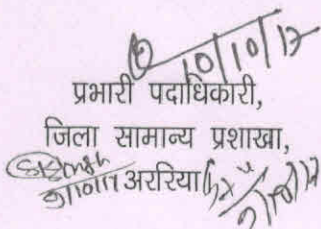 10/10/17
प्रभारी पदाधिकारी,
जिला सामान्य प्रशाखा,
अररिया
9/10/17